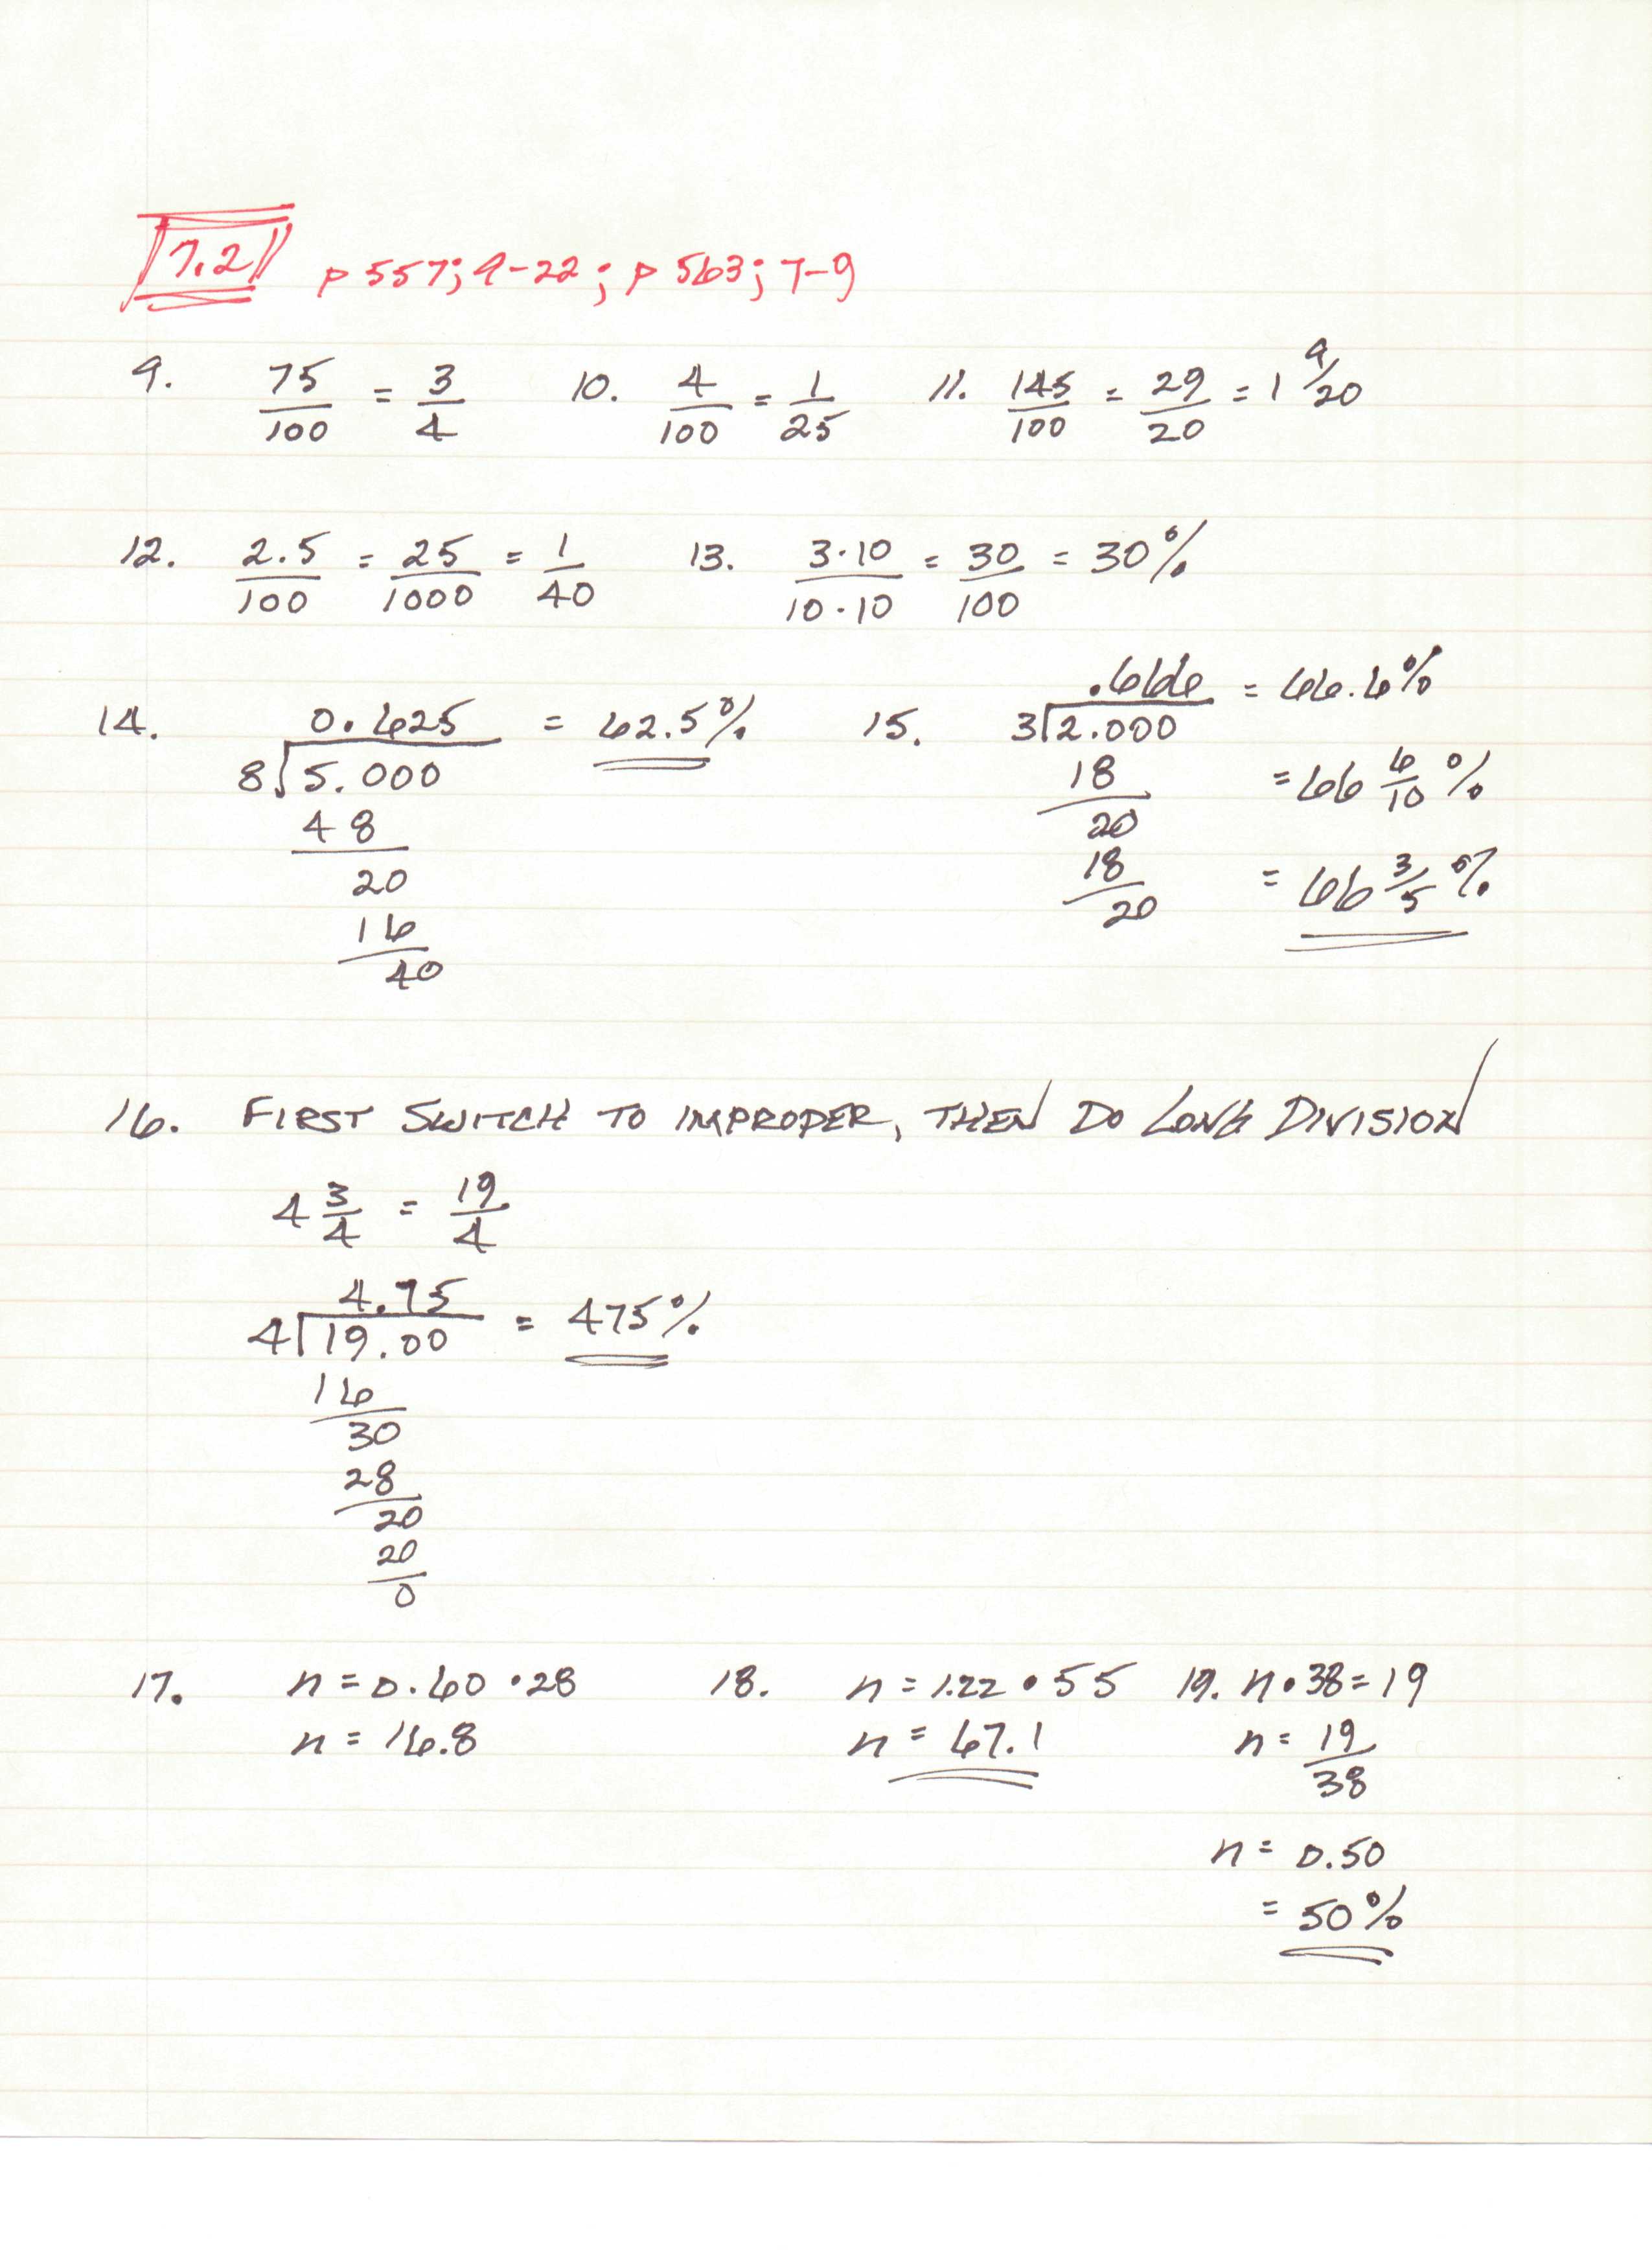 7.2 p 557; 9-22; p 563; 7-9
9. 75/100 = 3/4 10. 4/100 = 1/25 11. 145/100 = 29/20 = 1 9/20
12. 2.5/100 = 25/1000 = 1/40 13. 3·10/10·10 = 30/100 = 30%
14. 0.625 = 62.5%
8 5.000
48
20
16
40
15. .666 = 66.6%
3 2.000
18 = 66 6/10 %
20
18 = 66 3/5 %
20
16. FIRST SWITCH TO IMPROPER, THEN DO LONG DIVISION
4 3/4 = 19/4
4.75
4 19.00 = 475%
16
30
28
20
20
0
17. n = 0.60 • 28
n = 16.8
18. n = 1.22 • 55
n = 67.1
19. n • 38 = 19
n = 19/38
n = 0.50
= 50%